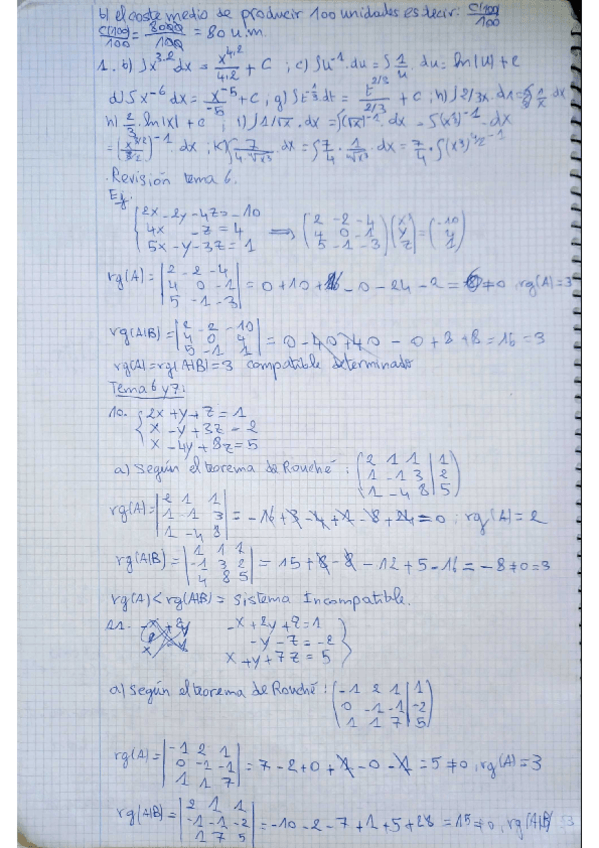 b) el coste medio de producir 100 unidades es decir: C(100)/100
C(100)/100 = 8000/100 = 80 u.m.
1. b) ∫x^3,2 dx = x^4,2/4,2 + C ; c) ∫u^-1 · du = ∫1/u du = ln(u) + c
d) ∫x^-6 dx = x^-5/-5 + C, g) ∫t^-1/3 dt = t^2/3 / 2/3 + C ; h) ∫2/3x · dx = 2/3 ∫1/x dx
h) 2/3 · ln|x| + c ; i) ∫1/√x · dx = ∫(√x)^-1 · dx = ∫(x^3)^-1 · dx
· dx ; k) ∫ 7/ · dx = ∫7/4 · 1/ · dx = 7/4 · ∫(x^3)
Revisión tema 6.
Ej.
{2x - 2y - 4z = -10
4x - z = 4
5x - y - 3z = 1 ⟹ (2 -2 -4 / 4 0 -1 / 5 -1 -3) (x / y / z) = (-10 / 4 / 1)
rg(A) = |2 -2 -4 / 4 0 -1 / 5 -1 -3| = 0 + 10 + 16 - 0 - 24 - 2 = ≠ 0, rg(A) = 3
rg(A|B) = |2 -2 -10 / 4 0 4 / 5 -1 1| = 0 - 40 + 40 - 0 + 8 + 8 = 16 = 3
rg(A) = rg(A|B) = 3 compatible determinado
Tema 6 y 7:
10. {2x + y + z = 1
x - y + 3z = 2
x - 4y + 8z = 5
a) Según el teorema de Rouché : (2 1 1 | 1 / 1 -1 3 | 2 / 1 -4 8 | 5)
rg(A) = |2 1 1 / 1 -1 3 / 1 -4 8| = -16 + 3 - 4 + 1 - 8 + 24 = 0 ; rg(A) = 2
rg(A|B) = |1 1 1 / -1 3 2 / 4 8 5| = 15 + 8 - 8 - 12 + 5 - 16 = -8 ≠ 0 = 3
rg(A) < rg(A|B) = Sistema Incompatible.
11. -x + 2y + z = 1
-y - z = -2
x + y + 7z = 5
a) Según el teorema de Rouché : (-1 2 1 | 1 / 0 -1 -1 | -2 / 1 1 7 | 5)
rg(A) = |-1 2 1 / 0 -1 -1 / 1 1 7| = 7 - 2 + 0 + 1 - 0 - 1 = 5 ≠ 0, rg(A) = 3
rg(A|B) = |2 1 1 / -1 -1 -2 / 1 7 5| = -10 - 2 - 7 + 1 + 5 + 28 = 15 ≠ 0, rg(A|B) = 3